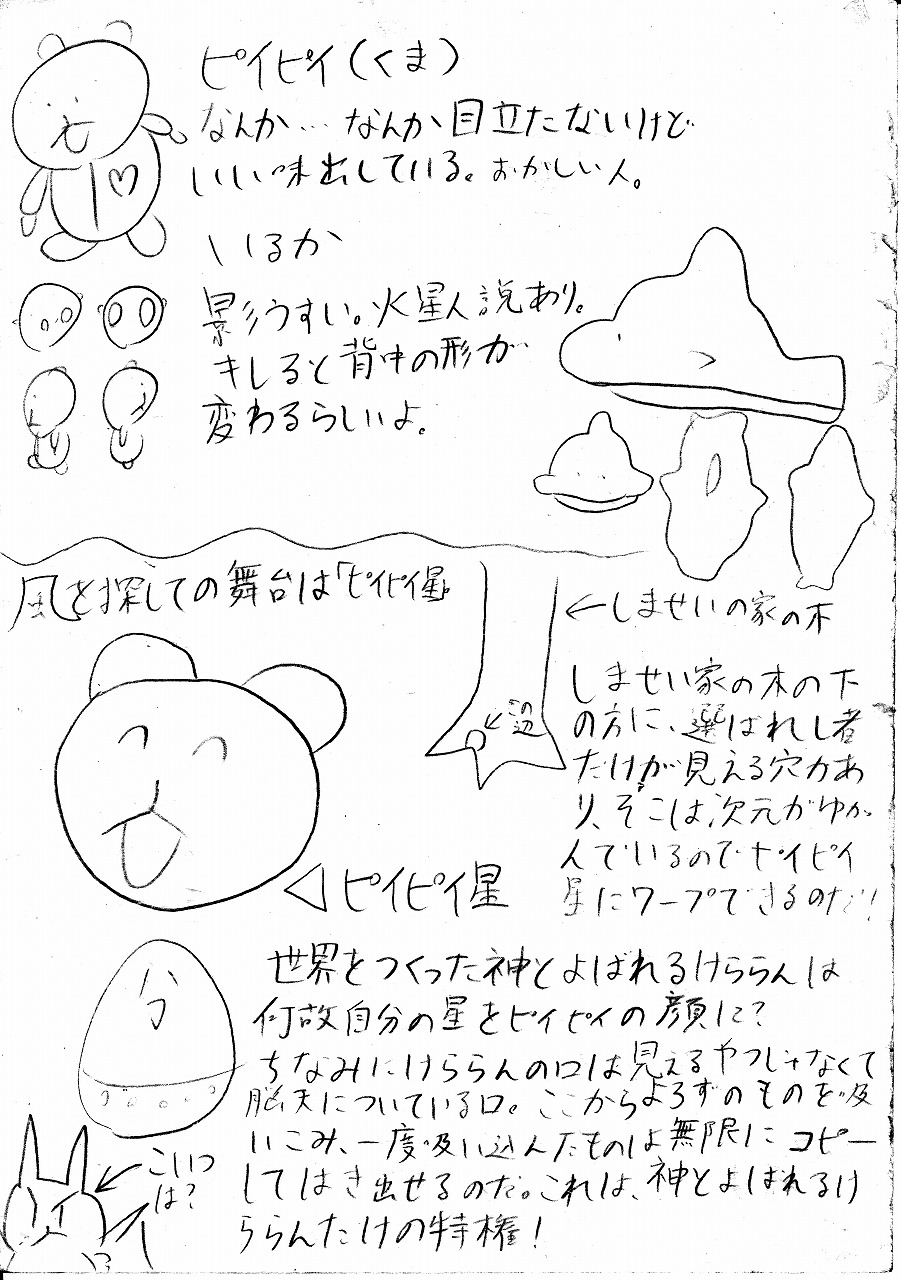 ピイピイ(くま)
なんか…なんか目立たないけど
いい味出している。おかしい人。
いるか
影うすい。火星人説あり。
キレると背中の形が
変わるらしいよ。
風を探しての舞台は「ピイピイ星」
←しませいの家の木
この
辺
しませい家の木の下
の方に、選ばれし者
だけが見える穴があ
り、そこは次元がゆが
んでいるのでピイピイ
星にワープできるのだ!
◁ピイピイ星
世界をつくった神とよばれるけららんは
何故自分の星をピイピイの顔に?
ちなみにけららんの口は見えるやつじゃなくて
脳天についている口。ここからよろずのものを吸
いこみ、一度吸い込んだものは無限にコピー
してはき出せるのだ。これは、神とよばれるけ
ららんだけの特権!
こいつ
は?